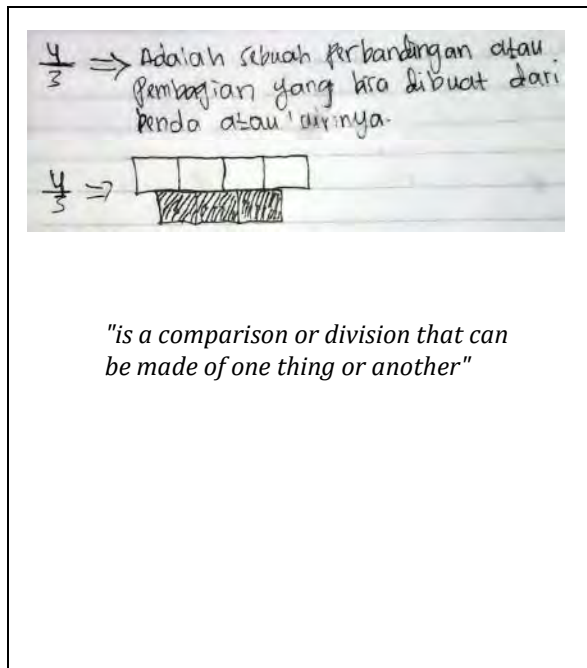 4/3 ⇒ Adalah sebuah perbandingan atau
pembagian yang bisa dibuat dari
benda atau
4/3 ⇒
"is a comparison or division that can
be made of one thing or another"